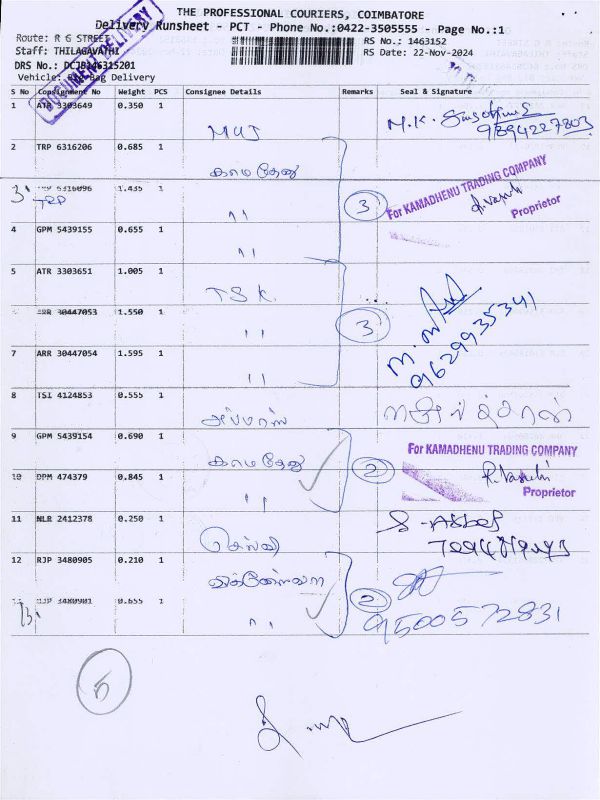 THE PROFESSIONAL COURIERS, COIMBATORE
Delivery Runsheet - PCT - Phone No.:0422-3505555 - Page No.:1
Route: R G STREET
RS No.: 1463152
Staff: THILAGAVATHI
RS Date: 22-Nov-2024
DRS No.: DCJB
Vehicle: Bag Delivery
DOCUMENT DELIVERY
S No Consignment No Weight PCS Consignee Details Remarks Seal & Signature
1 ATR 3303649 0.350 1 MUJ M.K. 9894227803
2 TRP 6316206 0.685 1 காமதேனு
3 TRP 6316096 1.435 1 " 3 For KAMADHENU TRADING COMPANY
Proprietor
4 GPM 5439155 0.655 1 "
5 ATR 3303651 1.005 1 TSK
ARR 30447053 1.550 1 " 3 M. 9629935341
7 ARR 30447054 1.595 1 "
8 TSI 4124853 0.555 1 அப்பாஸ்
9 GPM 5439154 0.690 1 காமதேனு For KAMADHENU TRADING COMPANY
10 DPM 474379 0.845 1 " 2 Proprietor
11 NLR 2412378 0.250 1 செல்வி
12 RJP 3480905 0.210 1
13 RJP 3480901 0.655 1 " 2 9500572831
5